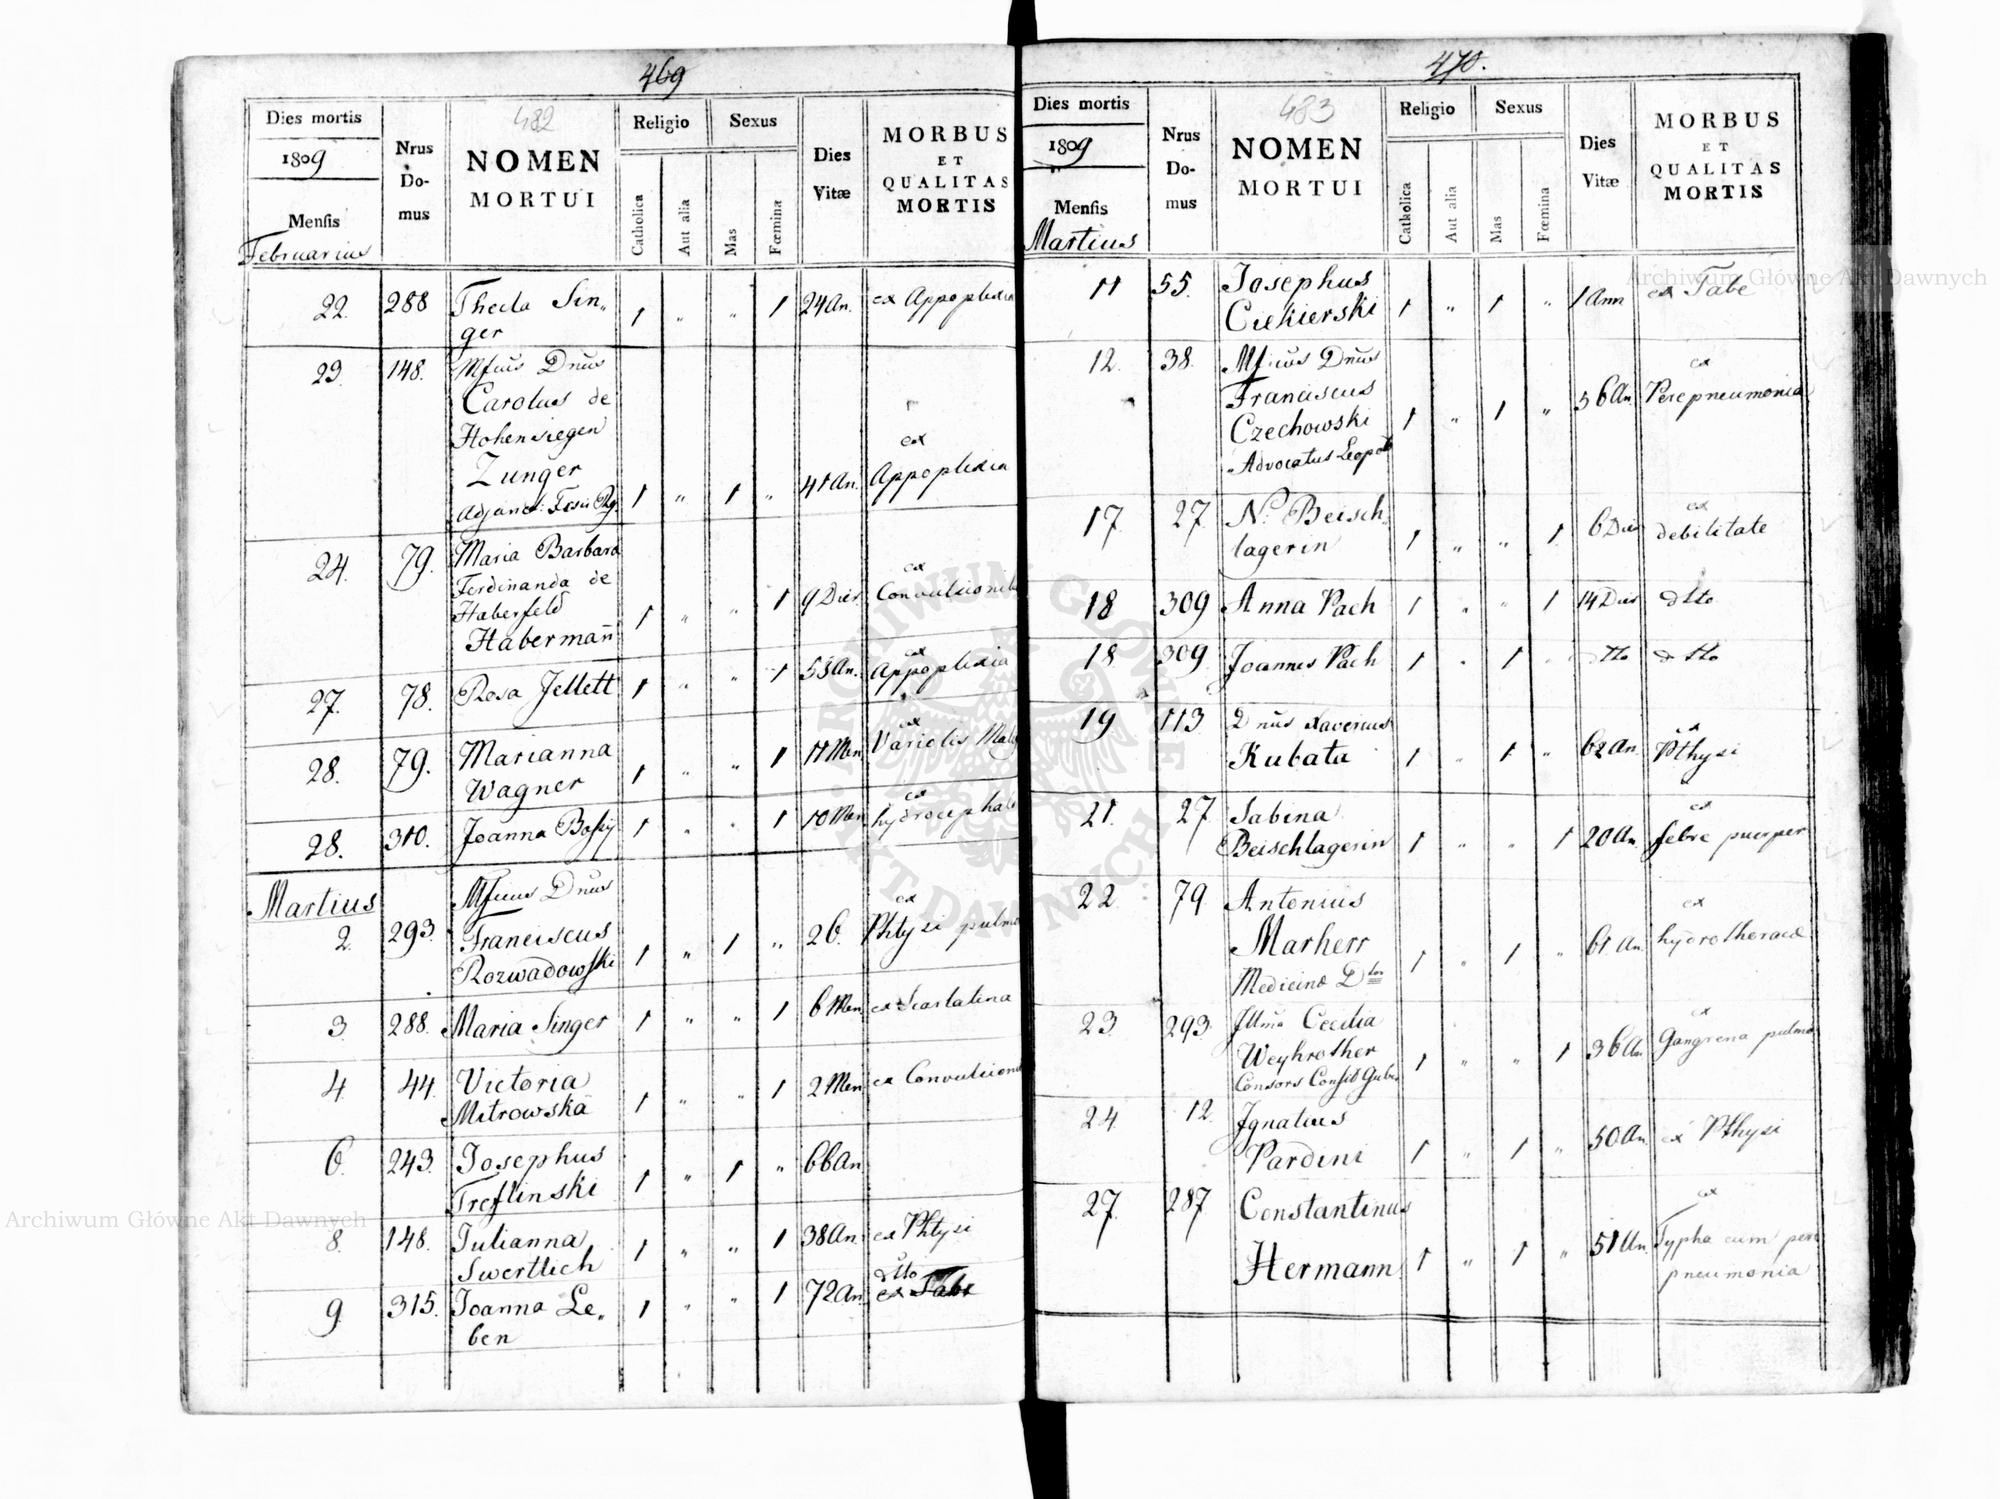 469
482
Dies mortis
1809
Mensis
Februarius
Nrus
Do-
mus
NOMEN
MORTUI
Religio
Catholica
Aut alia
Sexus
Mas
Fœminæ
Dies
Vitæ
MORBUS
ET
QUALITAS
MORTIS
22. 288 Thecla Sin„ 1 „ „ 1 24 An. ex Appoplexia
ger
23. 148. Mfcus Dnus
Carolus de
Hohensiegen ex
Zunger
Adjanct: 1 „ 1 „ 41 An. Appoplexia
24. 79. Maria Barbara
Ferdinanda de ex
Haberfeld 1 „ „ 1 9 Dier Convulsionib
Habermañ
27. 78. Rosa Jellett 1 „ „ 1 53 An. ex Appoplexia
28. 79. Marianna 1 „ „ 1 11 Men ex Variolis
Wagner
28. 310. Joanna Bossy 1 „ „ 1 10 Men ex hydrocephalo
Martius
2. 293. Mfcus Dnus
Franciscus 1 „ 1 „ 26. ex Phtysi pulmo
Rozwadowski
3 288. Maria Singer 1 „ „ 1 6 Men ex Scarlatina
4. 44. Victoria 1 „ „ 1 2 Men ex Convulsion
Mitrowska
6. 243. Josephus 1 „ 1 „ 66 An
Treflinski
8. 148. Julianna 1 „ „ 1 38 An. ex Phtysi
Swertlich
9 315. Joanna Le„ 1 „ „ 1 72 An. dtto
ben
470.
483
Dies mortis
1809
Mensis
Martius
Nrus
Do-
mus
NOMEN
MORTUI
Religio
Catholica
Aut alia
Sexus
Mas
Fœmina
Dies
Vitæ
MORBUS
ET
QUALITAS
MORTIS
11 55. Josephus 1 „ 1 „ 1 Ann ex Tabe
Ciekierski
12. 38. Mfcus Dnus ex
Franciscus 1 „ 1 „ 56 An. Perepneumonia
Czechowski
Advocatus Leopol
17. 27. N. Beisch„ ex
lagerin 1 „ „ 1 6 Dier debilitate
18 309 Anna Pach 1 „ „ 1 14 Dier dtto
18 309. Joannes Pach 1 „ 1 „ dtto dtto
19 113 Dnus Xaverius ex
Kubata 1 „ 1 „ 62 An. Pthysi
21. 27 Sabina ex
Beischlagerin 1 „ „ 1 20 An. febre puerper
22 79. Antonius ex
Marherr 1 „ 1 „ 61 An. hydrothorace
Medicinæ Dtor
23. 293. Illma Cecilia ex
Weyhrother 1 „ „ 1 36 An Gangrena pulmo
Consors Consil Guber
24 12. Ignatius
Pardini 1 „ 1 „ 50 An. ex Pthysi
27. 287 Constantinus ex
Hermann 1 „ 1 „ 51 An. Typho cum peri
pneumonia
Archiwum Główne Akt Dawnych
Archiwum Główne Akt Dawnych
ARCHIWUM GŁÓWNE AKT DAWNYCH